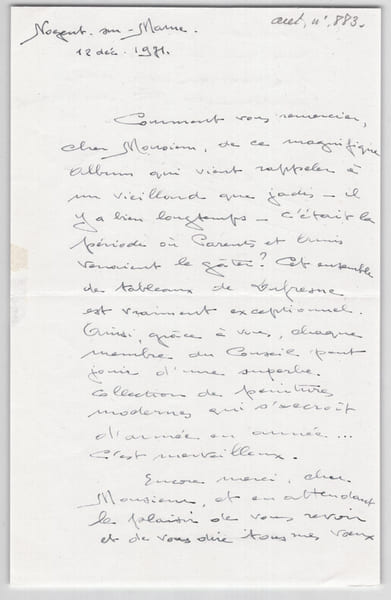 aut. n° 883.
Nogent-sur-Marne.
12 déc. 1971.
Comment vous remercier,
cher Monsieur, de ce magnifique
album qui vient rappeler à
un vieillard que jadis - il
y a bien longtemps - c'était la
période où Parents et Amis
venaient le gâter? Cet ensemble
de tableaux de Dufresne
est vraiment exceptionnel.
Ainsi, grâce à vous, chaque
membre du Conseil peut
jouir d'une superbe
collection de peintures
modernes qui s'accroît
d'année en année...
C'est merveilleux.
Encore merci, cher
Monsieur, et en attendant
le plaisir de vous revoir
et de vous dire tous mes vœux